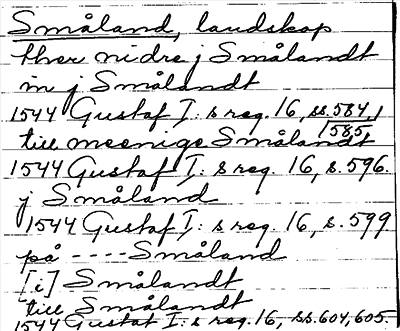 Småland, landskap
ther nidre j Smålandt
in j Smålandt
1544 Gustaf I:s reg. 16, ss. 584,
585
till meenige Smålandt
1544 Gustaf I:s reg. 16, s. 596.
j Småland
1544 Gustaf I:s reg. 16, s. 599
på ---- Småland
[i] Smålandt
till Smålandt
1544 Gustaf I:s reg. 16, ss. 604, 605.